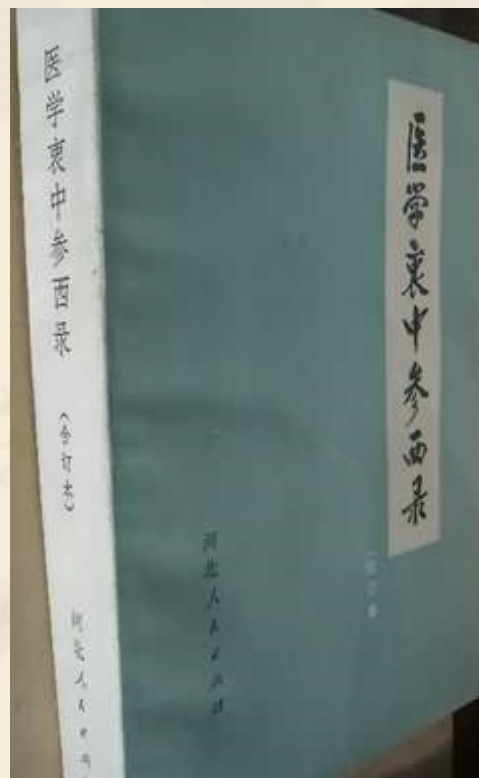 医学衷中参西录
（合订本）
河北人民出版
医学衷中参西录
河北人民出版